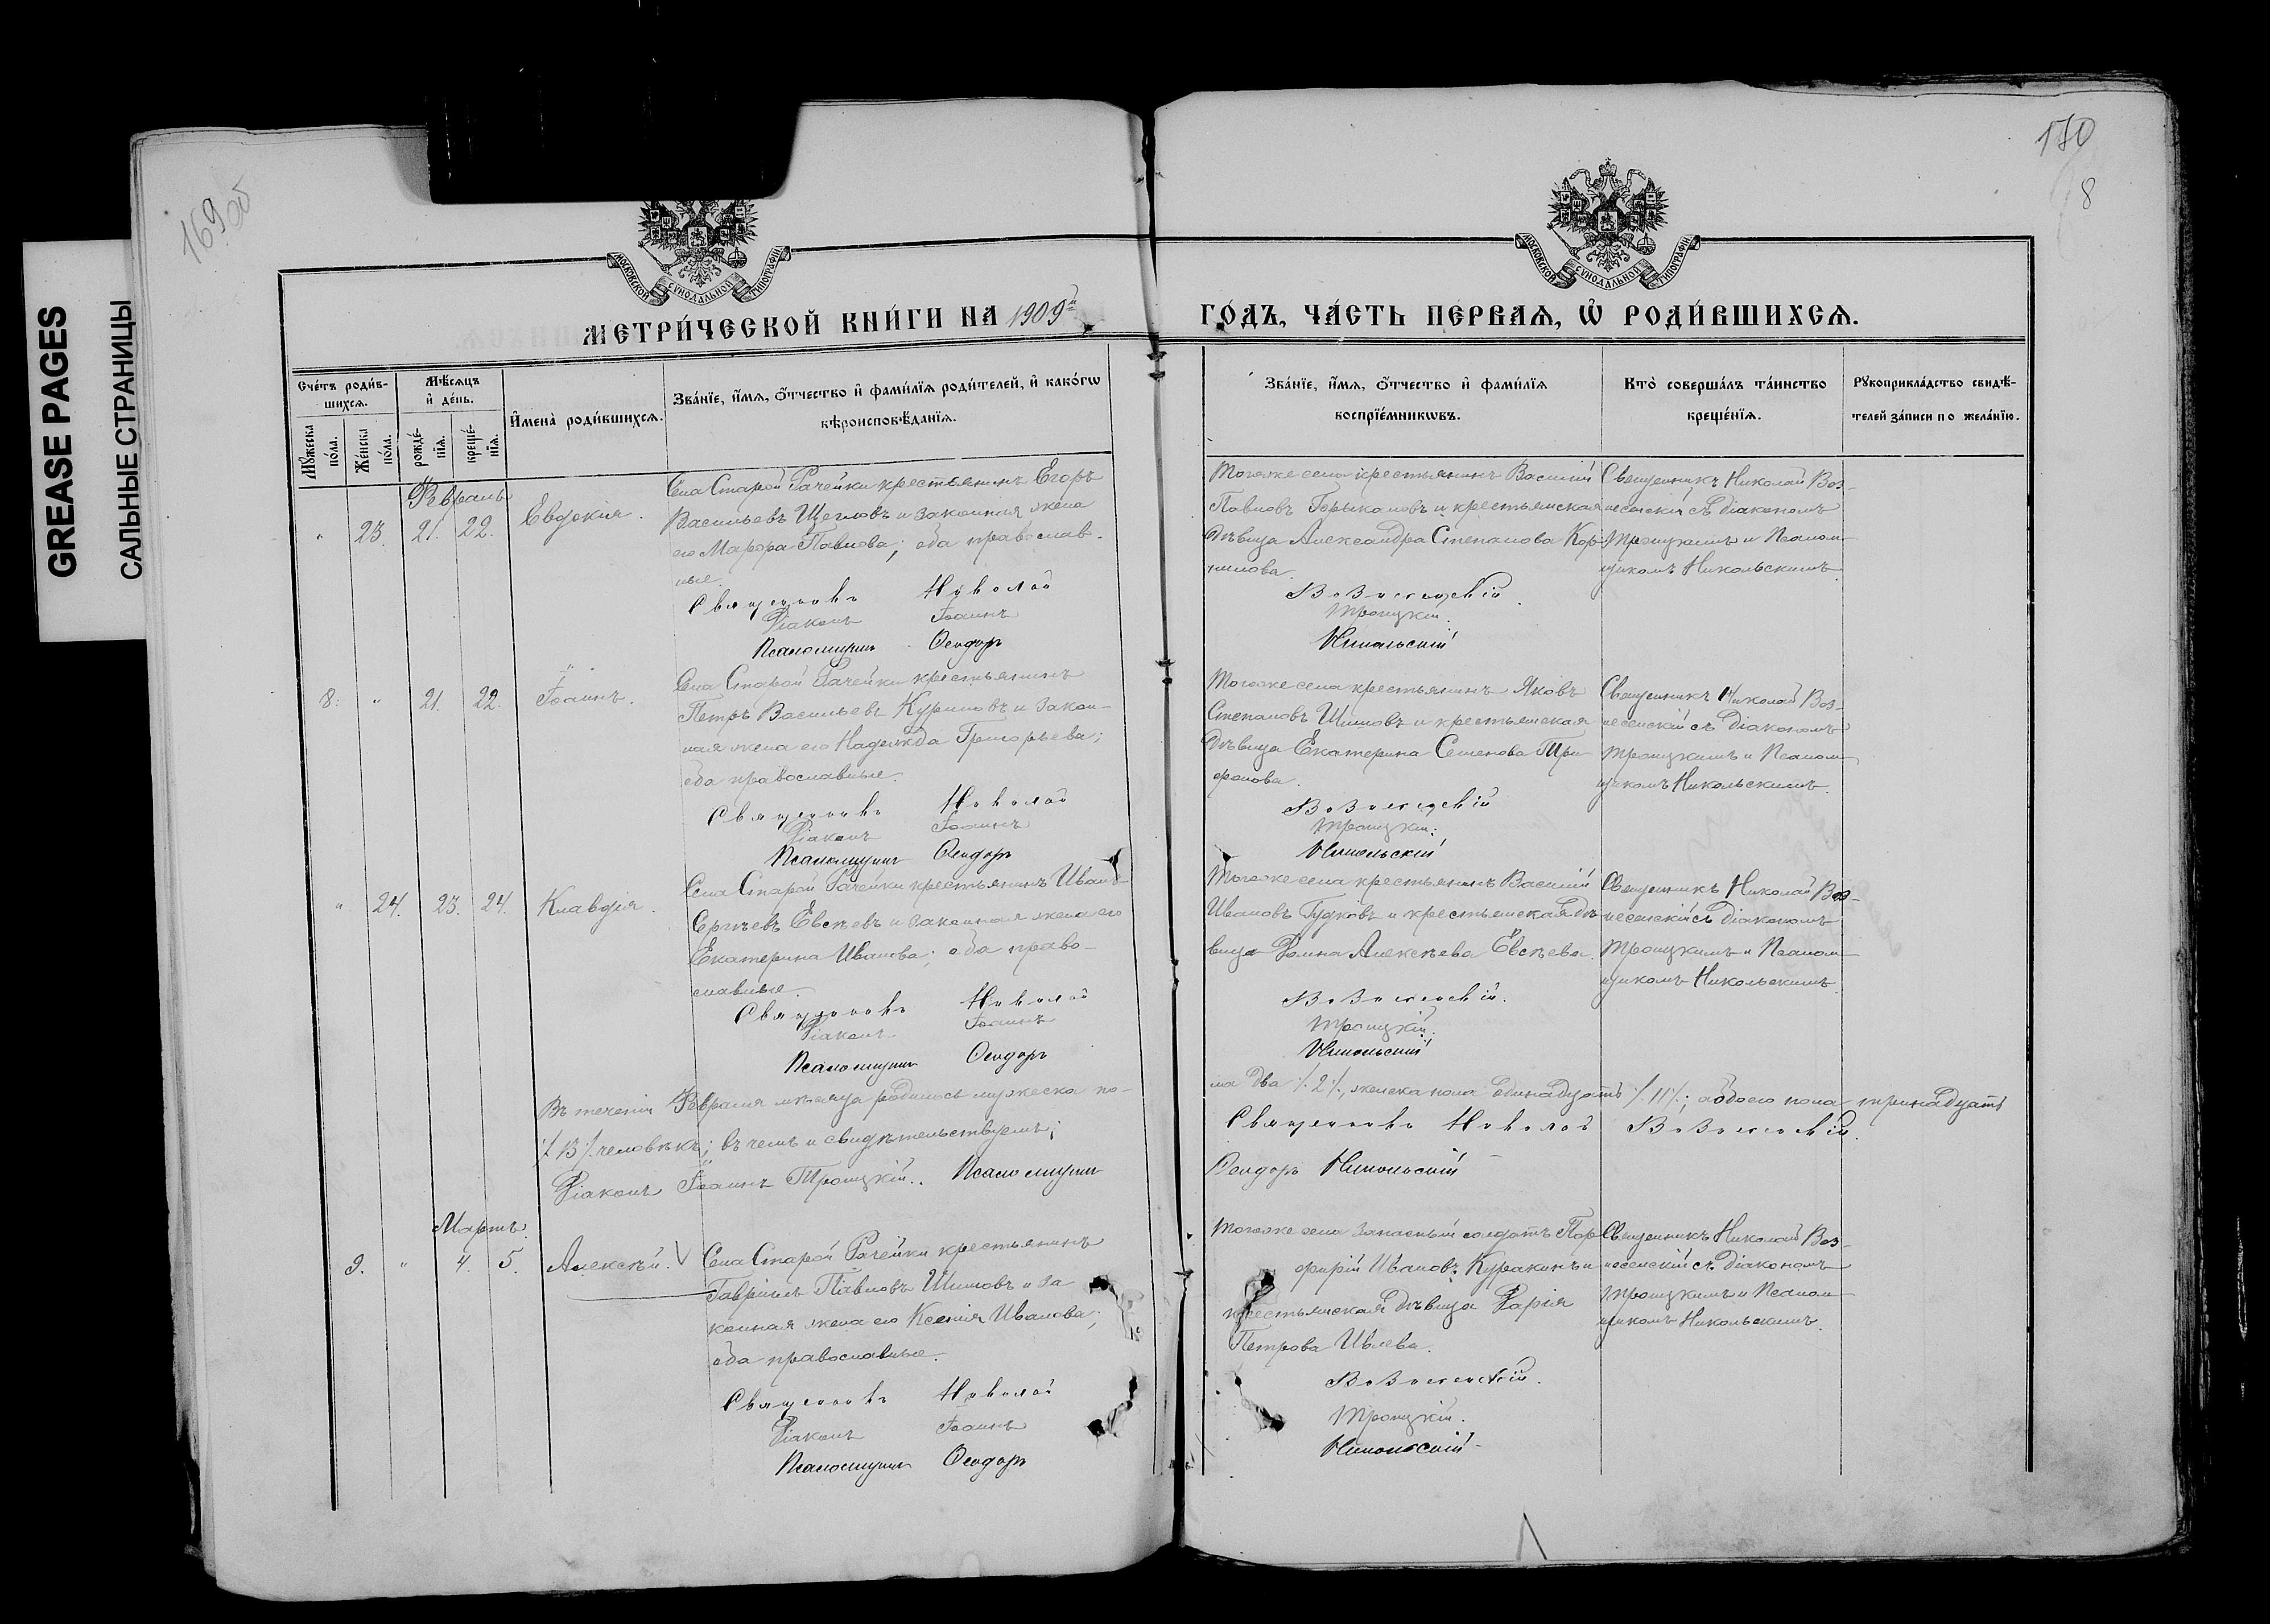 GREASE PAGES
САЛЬНЫЕ СТРАНИЦЫ
169об
170
8
МОСКОВСКОЙ СУНОДАЛЬНОЙ ТИПОГРАФІИ
МОСКОВСКОЙ СУНОДАЛЬНОЙ ТИПОГРАФІИ
МЕТРИ́ЧЕСКОЙ КНИ́ГИ НА 1909й
ГО́ДЪ, ЧА́СТЬ ПЕ́РВАѦ, Ѡ҆ РОДИ́ВШИХСѦ.
Сче́тъ роди́в-
шихсѧ.
Мѣ́сѧцъ
и҆ де́нь.
И҆мена̀ роди́вшихсѧ.
Зва́нїе, и҆́мѧ, ѻ҆́тчество и҆ фами́лїѧ роди́телей, и҆ како́гѡ
вѣроисповѣ́данїѧ.
Мꙋ́жеска
по́ла.
Же́нска
по́ла.
рожде́-
нїѧ.
креще́-
нїѧ.
Зва́нїе, и҆́мѧ, ѻ҆́тчество и҆ фами́лїѧ
воспрїе́мникѡвъ.
Кто̀ соверша́лъ та́инство
креще́нїѧ.
Рꙋкоприкла́дство свидѣ́-
телей за́писи по жела́нїю.
Февраль
" 23. 21. 22. Евдокія.
Села Старой Рачейки крестьянинъ Егоръ
Васильевъ Щегловъ и законная жена
его Марфа Павлова; оба православ-
ные.
Священникъ Николай
Діаконъ Іоаннъ
Псаломщикъ Ѳеодоръ
Тогоже села крестьянинъ Василій
Павловъ и крестьянская
дѣвица Александра Степанова Кор-
нилова.
Вознесенскій.
Троицкій.
Никольскій
Священникъ Николай Воз-
несенскій съ діакономъ
Троицкимъ и Псалом-
щикомъ Никольскимъ.
8. " 21. 22. Іоаннъ.
Села Старой Рачейки крестьянинъ
Петръ Васильевъ Куриловъ и закон-
ная жена его Надежда Григорьева;
оба православные.
Священникъ Николай
Діаконъ Іоаннъ
Псаломщикъ Ѳеодоръ
Тогоже села крестьянинъ Яковъ
Степановъ Шиловъ и крестьянская
дѣвица Екатерина Семенова Три-
фонова.
Вознесенскій
Троицкій.
Никольскій
Священникъ Николай Воз-
несенскій съ діакономъ
Троицкимъ и Псалом-
щикомъ Никольскимъ.
" 24. 23. 24. Клавдія.
Села Старой Рачейки крестьянинъ Иванъ
Сергѣевъ Евсѣевъ и законная жена его
Екатерина Иванова; оба право-
славные.
Священникъ Николай
Діаконъ Іоаннъ
Псаломщикъ Ѳеодоръ
Тогоже села крестьянинъ Василій
Ивановъ Гудковъ и крестьянская дѣ-
вица Домна Алексѣева Евсѣева.
Вознесенскій.
Троицкій.
Никольскій
Священникъ Николай Воз-
несенскій съ діакономъ
Троицкимъ и Псалом-
щикомъ Никольскимъ.
Въ теченіи Февраля мѣсяца родилось мужеска по-
ла два ⁒2⁒, женска пола одинадцать ⁒11⁒; а обоего пола тринадцать
⁒13⁒ человѣкъ; въ чемъ и свидѣтельствуемъ;
Священникъ Николай Вознесенскій.
Діаконъ Іоаннъ Троицкій. Псаломщикъ
Ѳеодоръ Никольскій
Мартъ.
9. " 4. 5. Алексѣй. V
Села Старой Рачейки крестьянинъ
Гавріилъ Павловъ Шиловъ и за-
конная жена его Ксенія Иванова;
оба православные.
Священникъ Николай
Діаконъ Іоаннъ
Псаломщикъ Ѳеодоръ
Тогоже села запасный солдатъ Пор-
фирій Ивановъ Куракинъ и
крестьянская дѣвица Дарія
Петрова Ивлева.
Вознесенскій.
Троицкій.
Никольскій
Священникъ Николай Воз-
несенскій съ діакономъ
Троицкимъ и Псалом-
щикомъ Никольскимъ.